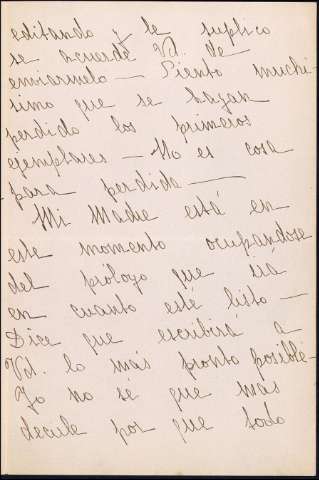 editando y le suplico
se acuerde Vd. de
enviarmelo — Siento muchi-
simo que se hayan
perdido los primeros
ejemplares — No es cosa
para perdida —
Mi Madre está en
este momento ocupandose
del prólogo que irá
en cuanto esté listo —
Dice que escribirá a
Vd. lo más pronto posible -
Yo no sé que mas
decirle por que todo